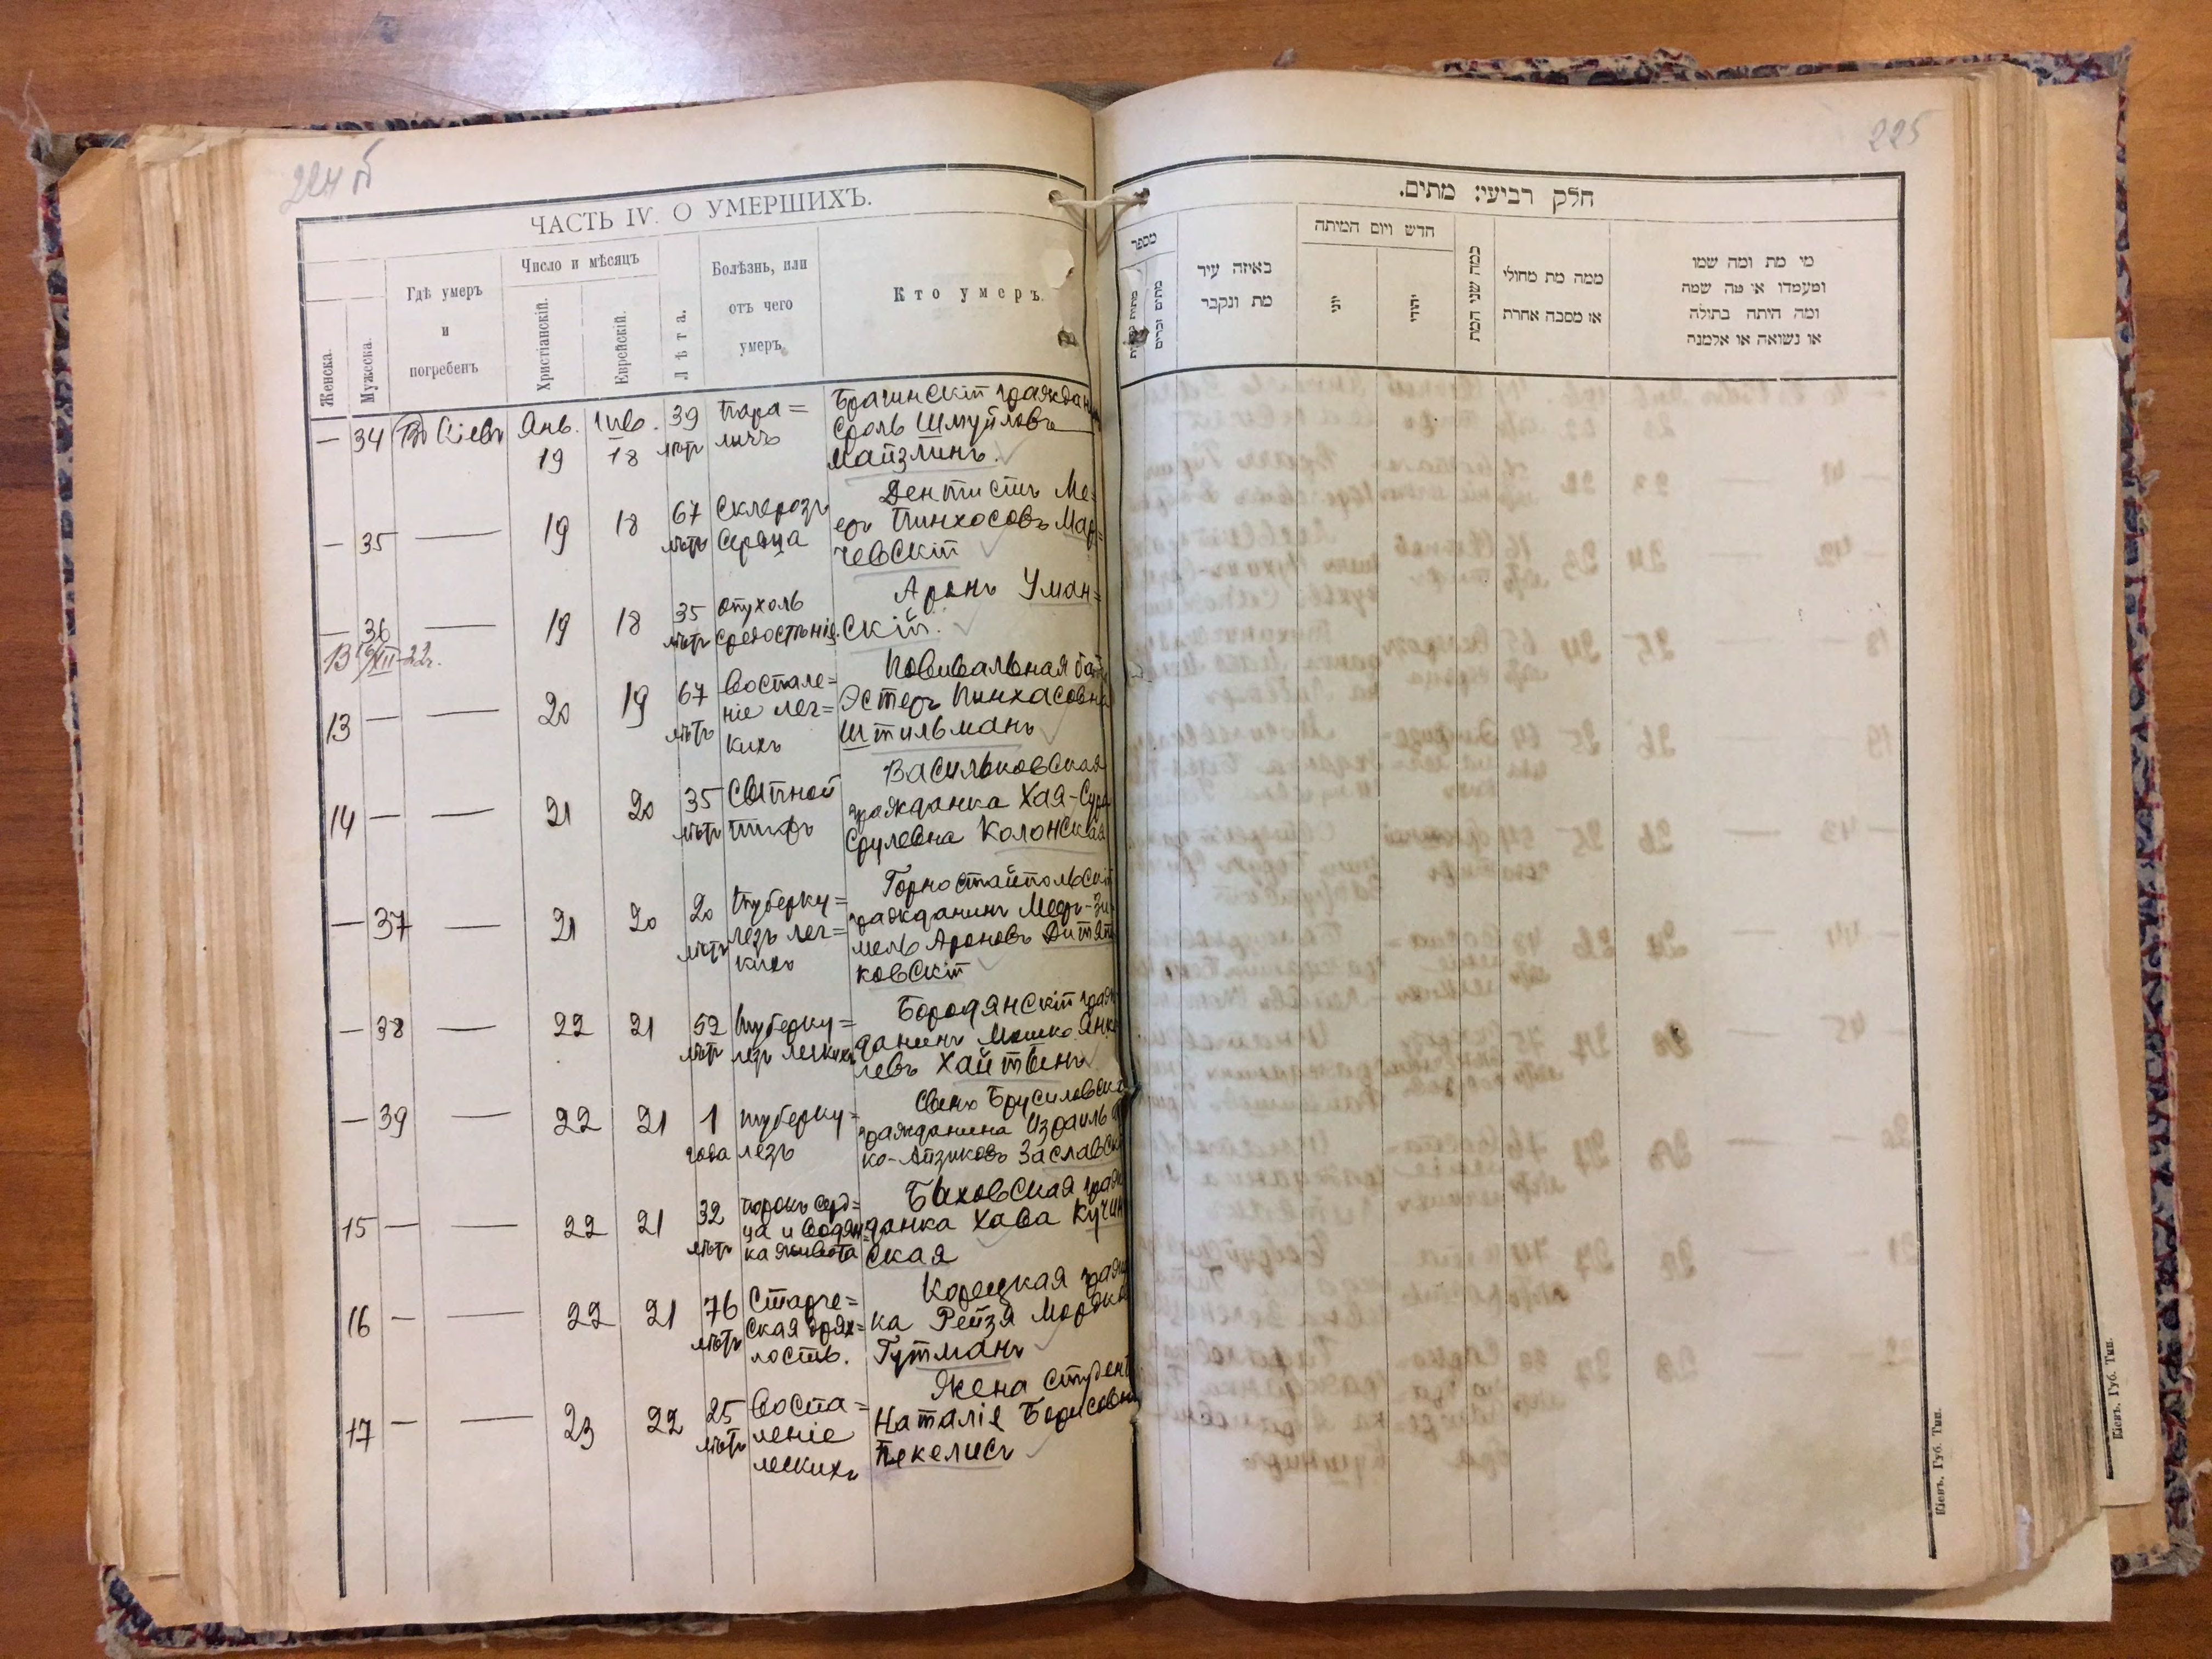 224 б
ЧАСТЬ IV. О УМЕРШИХЪ.
Женска.
Мужеска.
Гдѣ умеръ
и
погребенъ
Число и мѣсяцъ
Христіанскій.
Еврейскій.
Лѣта.
Болѣзнь, или
отъ чего
умеръ.
Кто умеръ.
— 34 Въ Кіевѣ Янв. 19 Шво. 18 39 лѣтъ
Пара=
личъ
Брагинскій граждан
Сроль Шмуйловъ
Майзлинъ.
— 35 — 19 18 67 лѣтъ
Склерозъ
сердца
Дентистъ Ме=
еръ Пинхосовъ Мар=
чевскій
— 36 — 19 18 35 лѣтъ
Опухоль
средостѣнія.
Аронъ Уман=
скій.
13 — — 20 19 67 лѣтъ
Воспале=
ніе лег=
кихъ
Повивальная баб
Эстеръ Пинхасовна
Штильманъ
14 — — 21 20 35 лѣтъ
Сыпной
тифъ
Васильковская
гражданка Хая-Сура
Срулевна Колонская
— 37 — 21 20 20 лѣтъ
Туберку=
лезъ лег=
кихъ
Горностайпольскій
гражданинъ Меер-Зи
мель Ароновъ Дитят
ковскій
— 38 — 22 21 52 лѣтъ
Туберку=
лезъ легкихъ
Бородянскій граж
данинъ Мошко Янке
левъ Хайтинъ
— 39 — 22 21 1 года
туберку=
лезъ
Сынъ Брусиловска
гражданина Израиль
ко-Айзиковъ Заславск
15 — — 22 21 32 лѣтъ
Порокъ серд=
ца и водян=
ка живота
Быховская граж
данка Хава Кучин
ская
16 — — 22 21 76 лѣтъ
Старче=
ская дрях=
лость.
Корецкая гражд
ка Рейзя Мордко
Гутманъ
17 — — 23 22 25 лѣтъ
Воспа=
леніе
легкихъ
Жена студент
Наталіе Борисовна
Пекелисъ
225
חלק רביעי: מתים.
מספר
מתים זכרים
באיזה עיר
מת ונקבר
חדש ויום המיתה
יוני
יהודי
כמה שני המת
ממה מת מחולי
או מסבה אחרת
מי מת ומה שמו
ומעמדו או מה שמה
ומה היתה בתולה
או נשואה או אלמנה
Кіевъ, Губ. Тип.
Кіевъ, Губ. Тип.